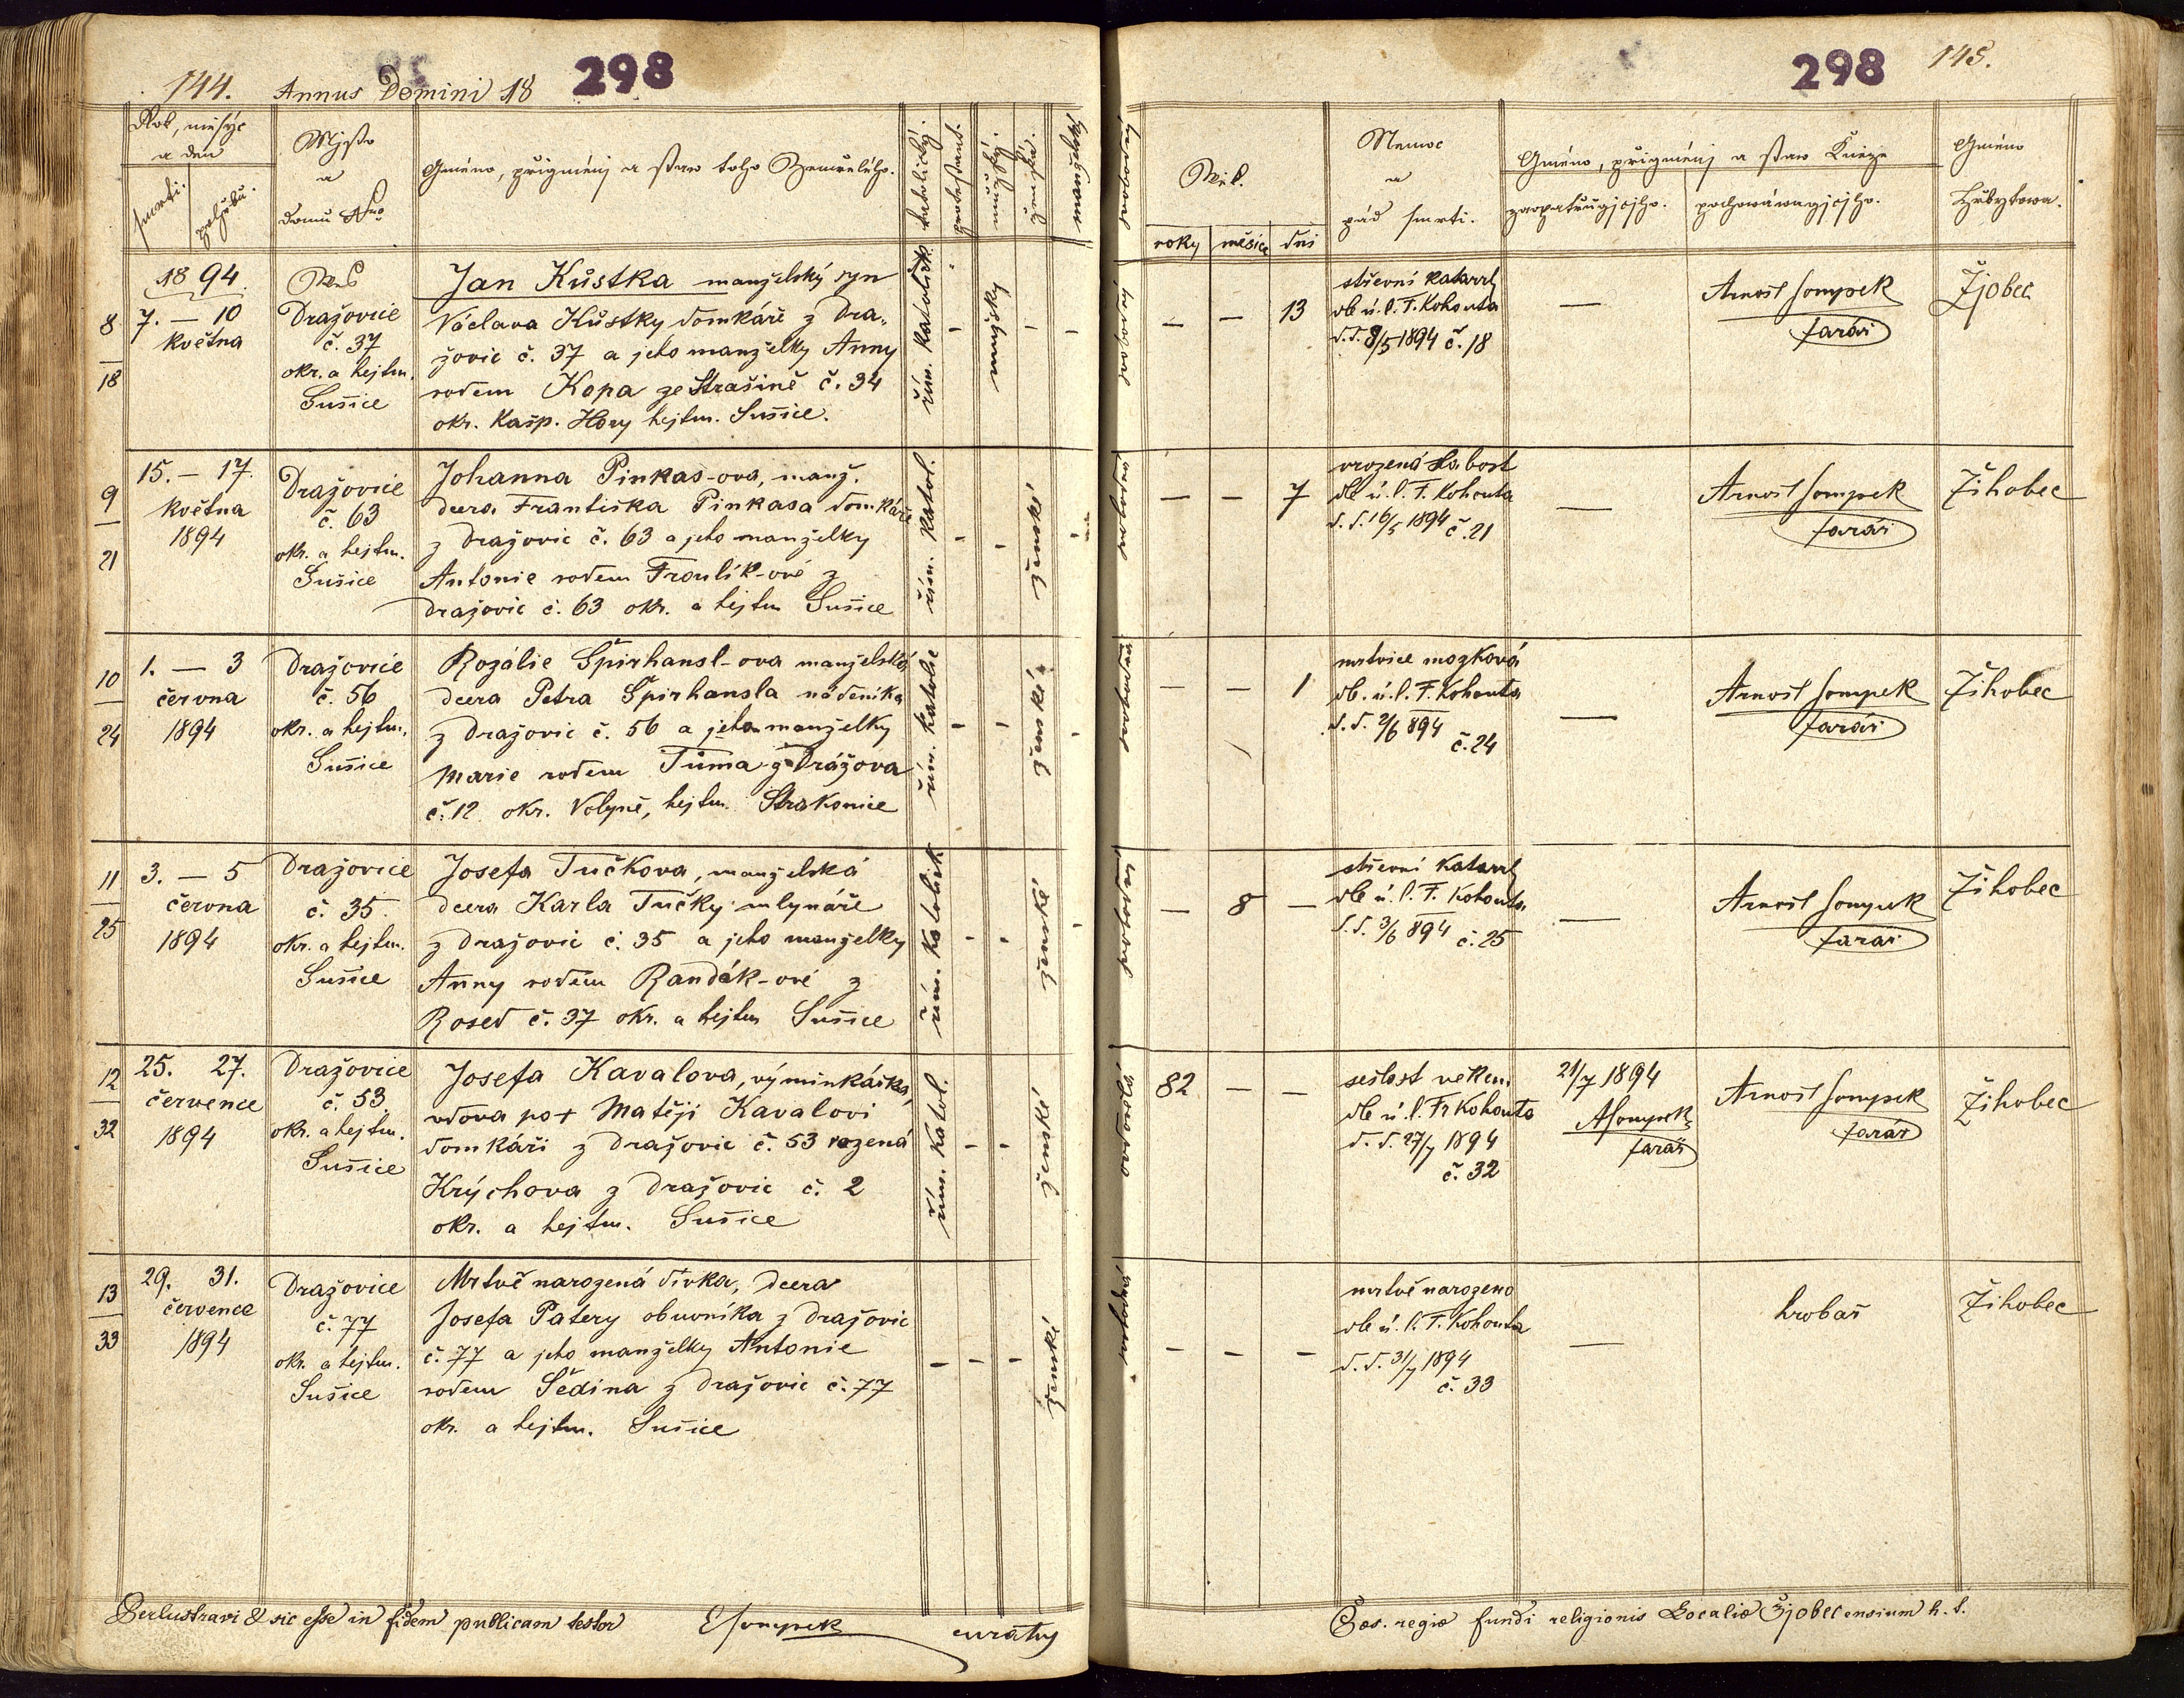 144. Annus Domini 18 298
Rok, měsýc
a den
smrti. pohřbu.
Mjsto
a
domu Nro
Gméno, přigménj a staw toho Zemřelého.
katolický.
protestant.
mužský.
ženská.
manželský
18 94.
8
18
7. — 10
května
Wes
Dražovice
č. 37
okr. a hejtm.
Sušice
Jan Kůstka manželský syn
Václava Kůstky domkáře z Dra-
žovic č. 37 a jeho manželky Anny
rodem Kopa ze Strašině č. 34
okr. Kašp. Hory hejtm. Sušice.
řím. katolick.
-
mužský
-
-
9
21
15. — 17.
května
1894
Dražovice
č. 63
okr. a hejtm.
Sušice
Johanna Pinkas-ova, manž.
dcera Františka Pinkasa domkáře
z Dražovic č. 63 a jeho manželky
Antonie rodem Froulík-ové z
Dražovic č. 63 okr. a hejtm Sušice
řím. katol.
-
-
ženské
-
10
24
1. — 3
června
1894
Dražovice
č. 56
okr. a hejtm.
Sušice
Rozálie Špirhansl-ova manželská
dcera Petra Špirhansla nádeníka
z Dražovic č. 56 a jeho manželky
Marie rodem Tůma z Drážova
č. 12 okr. Volyně, hejtm. Strakonice
řím. katolic
-
-
ženské
-
11
25
3. — 5
června
1894
Dražovice
č. 35.
okr. a hejtm.
Sušice
Josefa Tučkova, manželská
dcera Karla Tučky mlynáře
z Dražovic č. 35 a jeho manželky
Anny rodem Randák-ové z
Rosed č. 37 okr. a hejtm Sušice
řím. katolick
-
-
ženské
-
12
32
25. 27.
července
1894
Dražovice
č. 53
okr. a hejtm.
Sušice
Josefa Kavalova, výminkářka,
vdova po + Matěji Kavalovi
domkáři z Dražovic č. 53 rozená
Krýchova z Dražovic č. 2
okr. a hejtm. Sušice
řím. katol.
-
-
ženské
13
33
29. 31.
července
1894
Dražovice
č. 77
okr. a hejtm.
Sušice
Mrtvě narozená dívka, dcera
Josefa Patery obuvníka z Dražovic
č. 77 a jeho manželky Antonie
rodem Šedina z Dražovic č. 77
okr. a hejtm. Sušice
-
-
-
ženské
Perlustravi & sic esse in fidem publicam testor
ESompek
curatus
298 145.
Wěk.
roky měsíce dni
Nemoc
a
pád smrti.
Gméno, přigménj a staw Kněze
zaopatřugjcjho. pochowáwagjcjho.
Gméno
Hřbytowa.
— — 13
střevní katarrh
dle ú. l. F. Kohouta
d. d. 8/5 1894 č. 18
—
Arnošt Sompek
farář
Žjobec
— — 7
vrozená slabost
dle ú. l. F. Kohouta
d. d. 16/5 1894 č. 21
—
Arnošt Sompek
farář
Žihobec
— — 1
mrtvice mozková
dle ú. l. F. Kohouta
d. d. 2/6 894
č. 24
—
Arnošt Sompek
farář
Žihobec
— 8 —
střevní katarrh
dle ú. l. F. Kohouta
d. d. 3/6 894 č. 25
—
Arnošt Sompek
farář
Žihobec
82 — —
sešlost věkem
dle ú. l. Fr Kohouta
d. d. 27/7 1894
č. 32
21/7 1894
ASompek
farář
Arnošt Sompek
farář
Žihobec
— — —
mrtvě narozeno
dle ú. l. F. Kohouta
d. d. 31/7 1894
č. 33
—
hrobař
Žihobec
Caes. regiae fundi religionis Localiae Žjobecensium h. t.